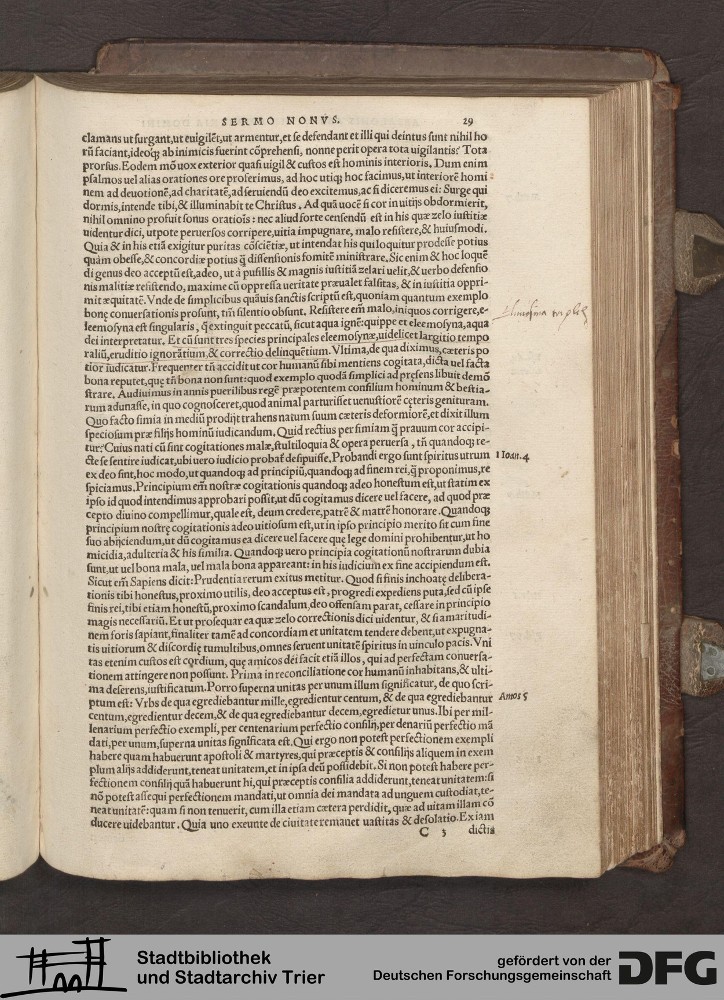 SERMO NONVS. 29
clamans ut surgant, ut euigilẽt, ut armentur, et se defendant et illi qui deintus sunt nihil ho
rũ faciant, ideoq; ab inimicis fuerint cõprehensi, nonne perit opera tota uigilantis? Tota
prorsus. Eodem mõ uox exterior quasi uigil & custos est hominis interioris. Dum enim
psalmos uel alias orationes ore proferimus, ad hoc utiq; hoc facimus, ut interiorẽ homi
nem ad deuotionẽ, ad charitatẽ, ad seruiendũ deo excitemus, ac si diceremus ei: Surge qui
dormis, intende tibi, & illuminabit te Christus. Ad quã uocẽ si cor in uitijs obdormierit,
nihil omnino profuit sonus oratiõis: nec aliud forte censendũ est in his quæ zelo iustitiæ
uidentur dici, utpote peruersos corripere, uitia impugnare, malo resistere, & huiusmodi.
Quia & in his etiã exigitur puritas cõsciẽtiæ, ut intendat his qui loquitur prodesse potius
quàm obesse, & concordiæ potius q̃ dissensionis fomitẽ ministrare. Sic enim & hoc loquẽ
di genus deo acceptũ est, adeo, ut à pusillis & magnis iustitiã zelari uelit, & uerbo defensio
nis malitiæ resistendo, maxime cũ oppressa ueritate præualet falsitas, & in iustitia oppri-
mit æquitatẽ. Vnde de simplicibus quãuis sanctis scriptũ est, quoniam quantum exemplo
bonę conuersationis prosunt, tm̃ silentio obsunt. Resistere em̃ malo, iniquos corrigere, e-
leemosyna est singularis, q̃ extinguit peccatũ, sicut aqua ignẽ: quippe et eleemosyna, aqua
dei interpretatur. Et cũ sunt tres species principales eleemosynæ, uidelicet largitio tempo
raliũ, eruditio ignorãtium, & correctio delinquẽtium. Vltima, de qua diximus, cæteris po
tior iudicatur. Frequenter tñ accidit ut cor humanũ sibi mentiens cogitata, dicta uel facta
bona reputet, quę tñ bona non sunt: quod exemplo quodã simplici ad pręsens libuit demõ
strare. Audiuimus in annis puerilibus regẽ præpotentem consilium hominum & bestia-
rum adunasse, in quo cognosceret, quod animal parturisset uenustiorẽ cęteris genituram.
Quo facto simia in mediũ prodijt trahens natum suum cæteris deformiorẽ, et dixit illum
speciosum præ filijs hominũ iudicandum. Quid rectius per simiam q̃ prauum cor accipi-
tur? Cuius nati cũ sint cogitationes malæ, stultiloquia & opera peruersa, tñ quandoq; re-
cte se sentire iudicat, ubi uero iudicio probat̃ desipuisse. Probandi ergo sunt spiritus utrum 1 Ioan. 4
ex deo sint, hoc modo, ut quandoq; ad principiũ, quandoq; ad finem rei, q̃ proponimus, re
spiciamus. Principium em̃ nostræ cogitationis quandoq; adeo honestum est, ut statim ex
ipso id quod intendimus approbari possit, ut dũ cogitamus dicere uel facere, ad quod præ
cepto diuino compellimur, quale est, deum credere, patrẽ & matrẽ honorare. Quandoq;
principium nostrę cogitationis adeo uitiosum est, ut in ipso principio merito sit cum fine
suo abijciendum, ut dũ cogitamus ea dicere uel facere quę lege domini prohibentur, ut ho
micidia, adulteria & his similia. Quandoq; uero principia cogitationũ nostrarum dubia
sunt, ut uel bona mala, uel mala bona appareant: in his iudicium ex fine accipiendum est.
Sicut em̃ Sapiens dicit: Prudentia rerum exitus metitur. Quod si finis inchoatę delibera-
tionis tibi honestus, proximo utilis, deo acceptus est, progredi expediens puta, sed cũ ipse
finis rei, tibi etiam honestũ, proximo scandalum, deo offensam parat, cessare in principio
magis necessariũ. Et ut prosequar ea quæ zelo correctionis dici uidentur, & si amaritudi-
nem foris sapiant, finaliter tamẽ ad concordiam et unitatem tendere debent, ut expugna-
tis uitiorum & discordię tumultibus, omnes seruent unitatẽ spiritus in uinculo pacis. Vni
tas etenim custos est cordium, quę amicos dei facit etiã illos, qui ad perfectam conuersa-
tionem attingere non possunt. Prima in reconciliatione cor humanũ inhabitans, & ulti-
ma deserens, iustificatum. Porro superna unitas per unum illum significatur, de quo scri-
ptum est: Vrbs de qua egrediebantur mille, egredientur centum, & de qua egrediebantur Amos 5
centum, egredientur decem, & de qua egrediebantur decem, egredietur unus. Ibi per mil-
lenarium perfectio exempli, per centenarium perfectio consilij, per denariũ perfectio mã
dati, per unum, superna unitas significata est. Qui ergo non potest perfectionem exempli
habere quam habuerunt apostoli & martyres, qui præceptis & consilijs aliquem in exem
plum alijs addiderunt, teneat unitatem, et in ipsa deũ possidebit. Si non potest habere per-
fectionem consilij quã habuerunt hi, qui præceptis consilia addiderunt, teneat unitatem: si
nõ potest assequi perfectionem mandati, ut omnia dei mandata ad unguem custodiat, te-
neat unitatẽ: quam si non tenuerit, cum illa etiam cætera perdidit, quæ ad uitam illam cõ
ducere uidebantur. Quia uno exeunte de ciuitate remanet uastitas & desolatio. Ex iam
C 3 dictis
Stadtbibliothek
und Stadtarchiv Trier
gefördert von der
Deutschen Forschungsgemeinschaft
DFG